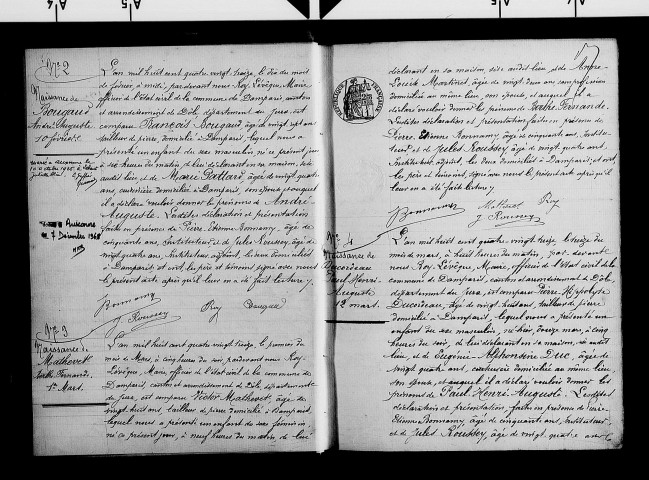 N° 2
Naissance de
Bougaud
André Auguste
10 février.
Auxonne
le 7 Décembre 1968
L'an mil huit cent quatre vingt treize, le dix du mois
de février, à midi, par devant nous Roy Lévêque, Maire
officier de l'état civil de la commune de Damparis, canton
et arrondissement de Dôle, département du Jura, est
comparu François Bougaud âgé de vingt sept ans
tailleur de pierre, domicilié à Damparis, lequel nous a
présenté un enfant du sexe masculin, né ce présent jour
à six heures du matin, de lui déclarant en sa maison, sise
audit lieu, et de Marie Gattard âgée de vingt quatre
ans, ouvrière domiciliée à Damparis, son épouse, et auquel
il a déclaré vouloir donner les prénoms de André
Auguste. Lesdites déclaration et présentation
faites en présence de Pierre Etienne Bonnamy, âgé de
cinquante ans, Instituteur, et de Jules Roussey, âgé de
vingt quatre ans, Instituteur adjoint, les deux domiciliés
à Damparis, et ont les père et témoins signé avec nous
le présent acte, après qu'il leur en a été fait lecture.
Bonnamy
J. Roussey
Roy
Bougaud
N° 3
Naissance de
Mathovet
Fernande
1er Mars.
L'an mil huit cent quatre vingt treize, le premier du
mois de Mars, à cinq heures du soir, par devant nous Roy
Lévêque Maire, officier de l'état civil de la commune de
Damparis, canton et arrondissement de Dôle, département
du Jura, est comparu Victor Mathovet, âgé de
vingt huit ans, tailleur de pierre, domicilié à Damparis,
lequel nous a présenté un enfant du sexe féminin
né ce présent jour, à neuf heures du matin, de lui
déclarant en sa maison, sise audit lieu, et de
Louise Martinet, âgée de vingt deux ans, sans profession
domiciliée au même lieu, son épouse, et auquel il a
déclaré vouloir donner les prénoms de Fernande.
Lesdites déclaration et présentation, faites en présence de
Pierre Etienne Bonnamy, âgé de cinquante ans, Institu-
teur, et de Jules Roussey, âgé de vingt quatre ans,
Instituteur adjoint, les deux domiciliés à Damparis, et ont
les père et témoins, signé avec nous le présent acte après qu'il
leur en a été fait lecture.
Bonnamy
Roy
J. Roussey
N° 4
Naissance de
Ducordeau
Paul Henri
Auguste
12 mars.
L'an mil huit cent quatre-vingt treize, le treize du
mois de mars, à huit heures du matin, par devant
nous Roy Lévêque, Maire, officier de l'état civil de la commune
de Damparis, canton et arrondissement de Dôle,
département du Jura, est comparu Pierre Hypolyte
Ducordeau, âgé de vingt huit ans, tailleur de pierre
domicilié à Damparis, lequel nous a présenté un
enfant du sexe masculin, né hier, douze mars, à cinq
heures du soir, de lui déclarant en sa maison, sise audit
lieu, et de Eugénie Alphonsine Duc, âgée de
vingt quatre ans, domiciliée au même lieu
son épouse, et auquel il a déclaré vouloir donner les
prénoms de Paul Henri Auguste. Lesdites
déclaration et présentation, faites en présence de Pierre-
Etienne Bonnamy, âgé de cinquante ans, Instituteur
et de Jules Roussey, âgé de vingt quatre ans